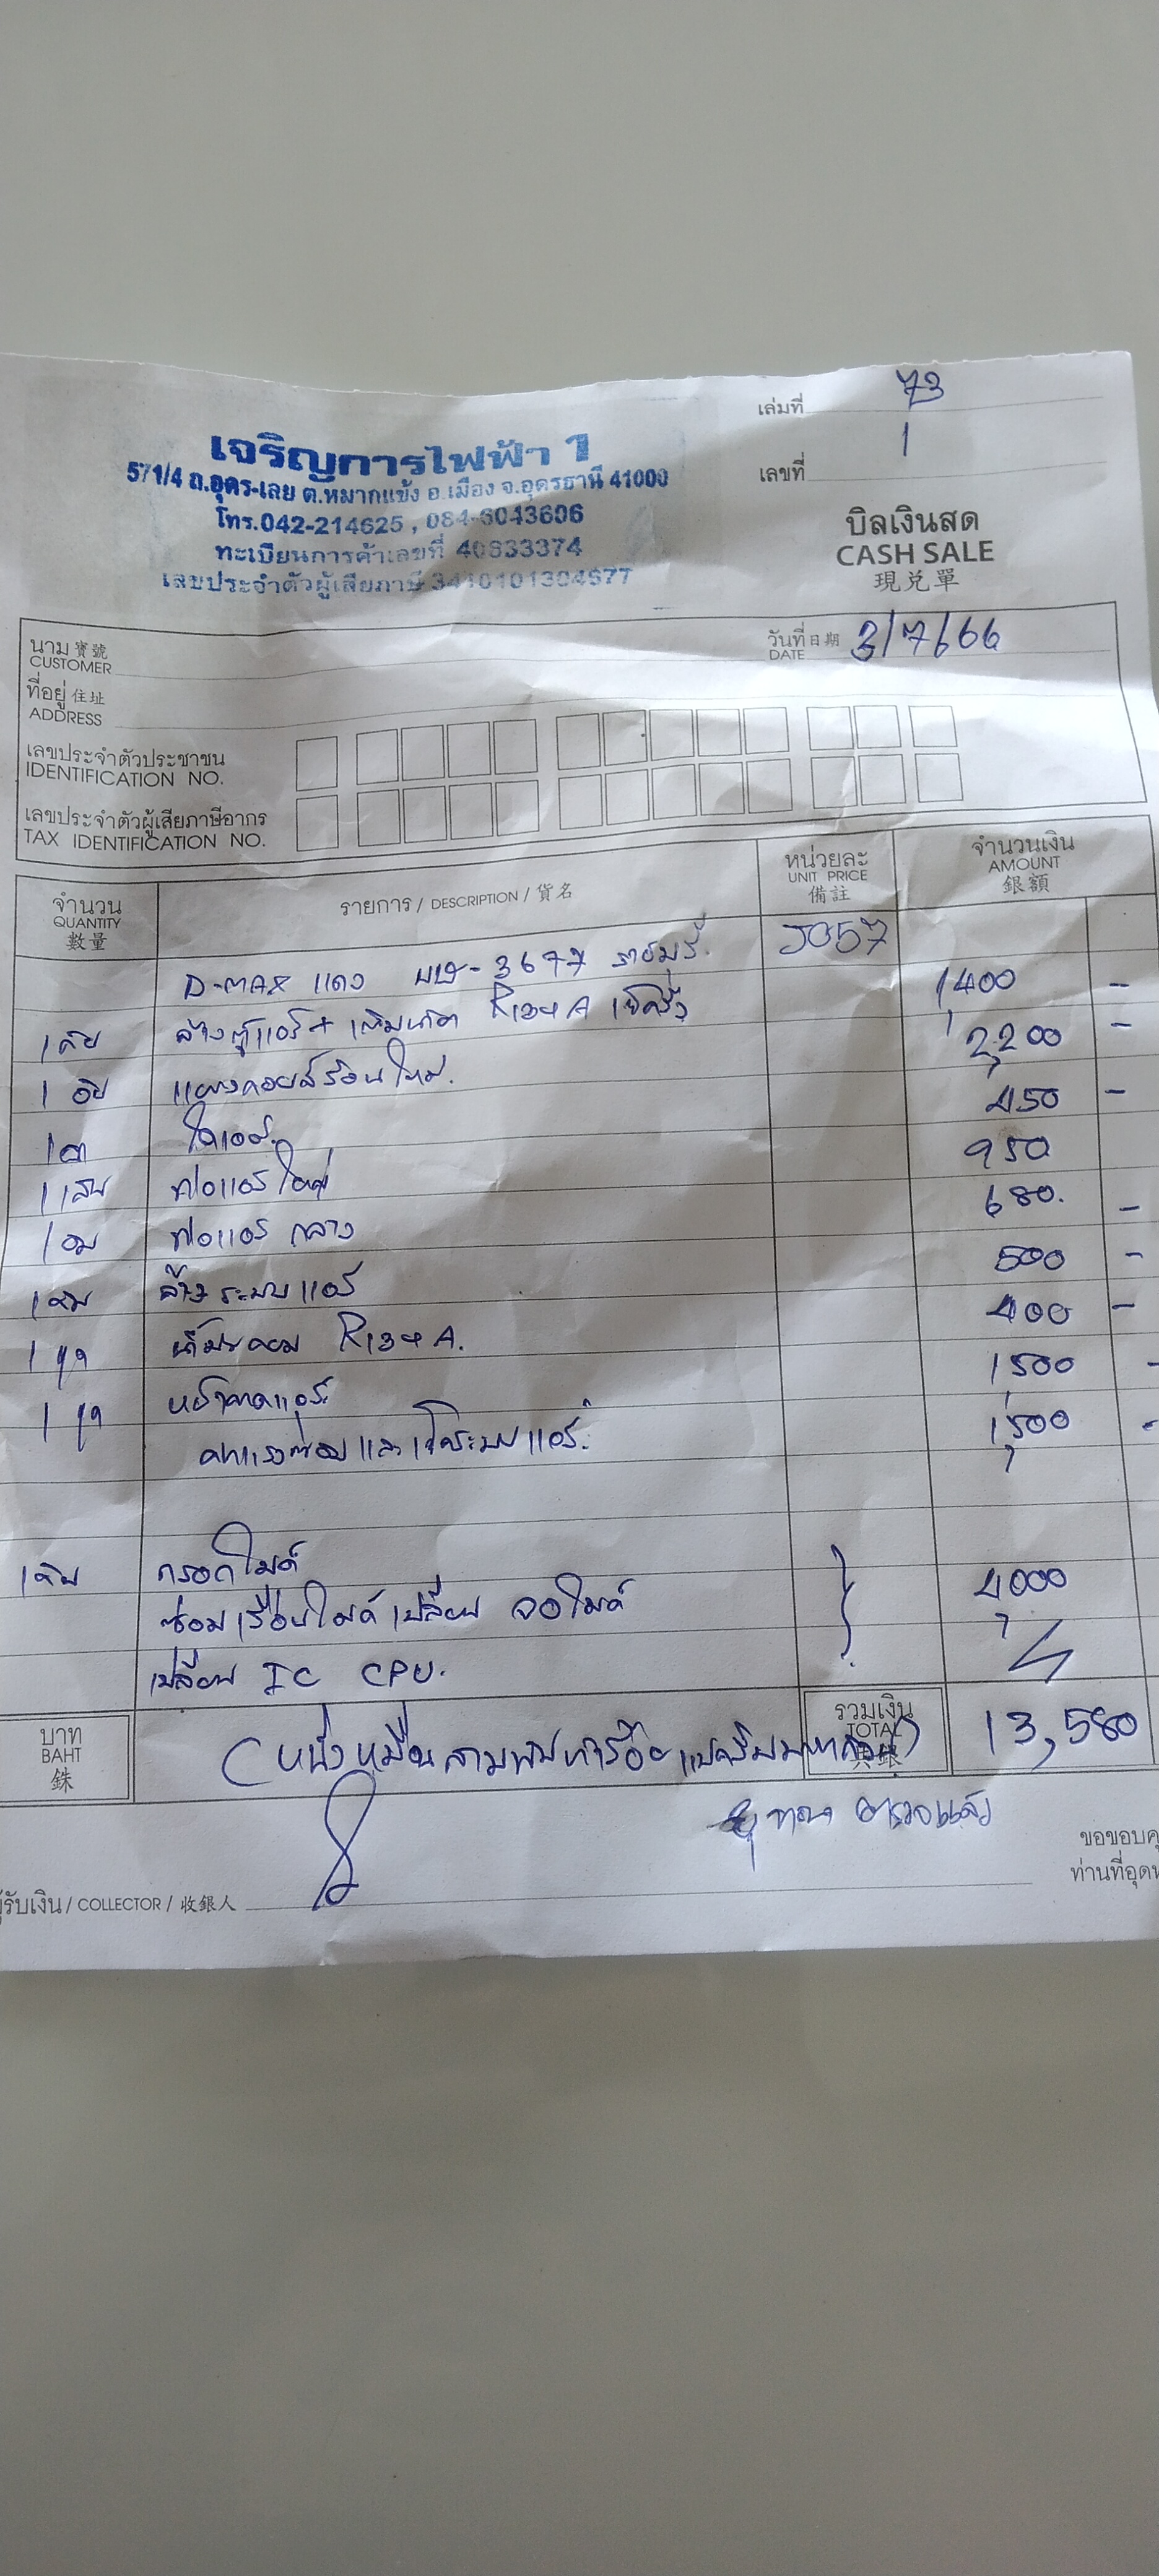 เล่มที่ 73
เลขที่ 1
เจริญการไฟฟ้า 1
571/4 ถ.อุดร-เลย ต.หมากแข้ง อ.เมือง จ.อุดรธานี 41000
โทร.042-214625 , 084-6043606
ทะเบียนการค้าเลขที่ 40633374
เลขประจำตัวผู้เสียภาษี 3410101304677
บิลเงินสด
CASH SALE
現兌單
นาม 寶號
CUSTOMER
วันที่ 日期 3/7/66
DATE
ที่อยู่ 住址
ADDRESS
เลขประจำตัวประชาชน
IDENTIFICATION NO.
เลขประจำตัวผู้เสียภาษีอากร
TAX IDENTIFICATION NO.
จำนวน
QUANTITY
數量
รายการ / DESCRIPTION / 貨名
หน่วยละ
UNIT PRICE
備註
จำนวนเงิน
AMOUNT
銀額
D-MAX แดง 3677 ราชบุรี. J057
ล้างตู้แอร์ + เติมน้ำยา R134A 1,400 -
1 แผงคอยล์ร้อนใหม่. 2,200 -
1 ไดเออร์. 450 -
1 เส้น ท่อแอร์ใหญ่ 950
1 ท่อแอร์ กลาง 680. -
1 ล้างระบบแอร์ 500 -
1 น้ำมันคอม R134A. 400 -
1 หน้าคลัชแอร์ 1,500 -
ค่าแรงซ่อมและเช็คระบบแอร์. 1,500 -
กรอไมค์
ซ่อมเรือนไมค์ เปลี่ยน จอไมค์ 4,000
เปลี่ยน IC CPU.
บาท
BAHT
銖
(หนึ่งหมื่นสามพันห้าร้อยแปดสิบบาทถ้วน)
รวมเงิน
TOTAL
13,580
ตรวจแล้ว
ขอขอบคุ
ท่านที่อุดห
ผู้รับเงิน / COLLECTOR / 收銀人